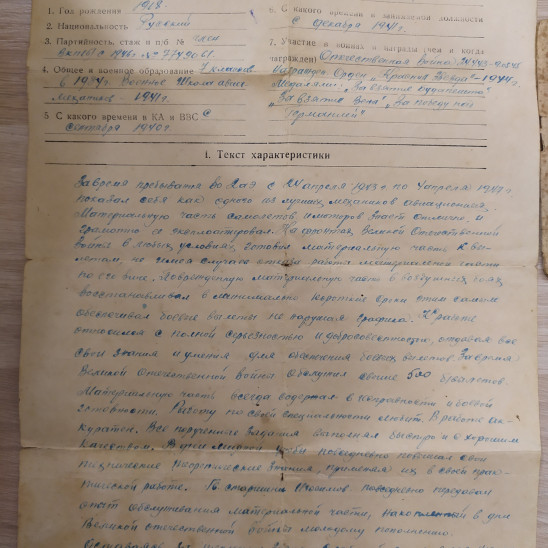 1. Год рождения 1918
2. Национальность Русский
3. Партийность, стаж и п/б № член
ВКП(б) с 1946 г. № 7749061.
4. Общее и военное образование 7 классов
в 1934 г. Военное Школа авиа-
механиков – 1941 г.
5. С какого времени в КА и ВВС с
сентября 1940 г.
6. С какого времени в занимаемой должности
с декабря 1941 г.
7. Участие в войнах и награды (чем и когда
награжден) Отечественная Война
Награжден Орден „Красная Звезда“ – 1944 г.
Медалями: „За взятие Будапешта“
„За взятие Вены“, „За победу над
Германией“
I. Текст характеристики
За время пребывания во 2 АЭ с 24 апреля 1943 г. по 4 апреля 1947 г.
показал себя как одного из лучших механиков авиационных.
Материальную часть самолетов и моторов знает отлично, и
грамотно ее эксплоатировал. На фронтах Великой Отечественной
Войны в любых условиях, готовил материальную часть к вы-
летам, не имея случаев отказа работы материальной части
по его вине. Поврежденную материальную часть в воздушных боях
восстанавливал в минимально короткие сроки этим самым
обеспечивал боевые вылеты не нарушая графика. К работе
относился с полной серьезностью и добросовестностью, отдавая все
свои знания и умения для обеспечения боевых вылетов. За время
Великой отечественной войны обслужил свыше 500 б/вылетов.
Материальную часть всегда содержал в исправности и боевой
готовности. Работу по своей специальности любит. В работе ак-
куратен. Все порученные задания выполнял быстро и с хорошим
качеством. В дни мирной учебы повседневно повышал свои
технические теоретические знания, применяя их в своей прак-
тической работе. Т. старшина повседневно передавал
опыт обслуживания материальной части, накопленный в дни
Великой отечественной войны молодому пополнению.